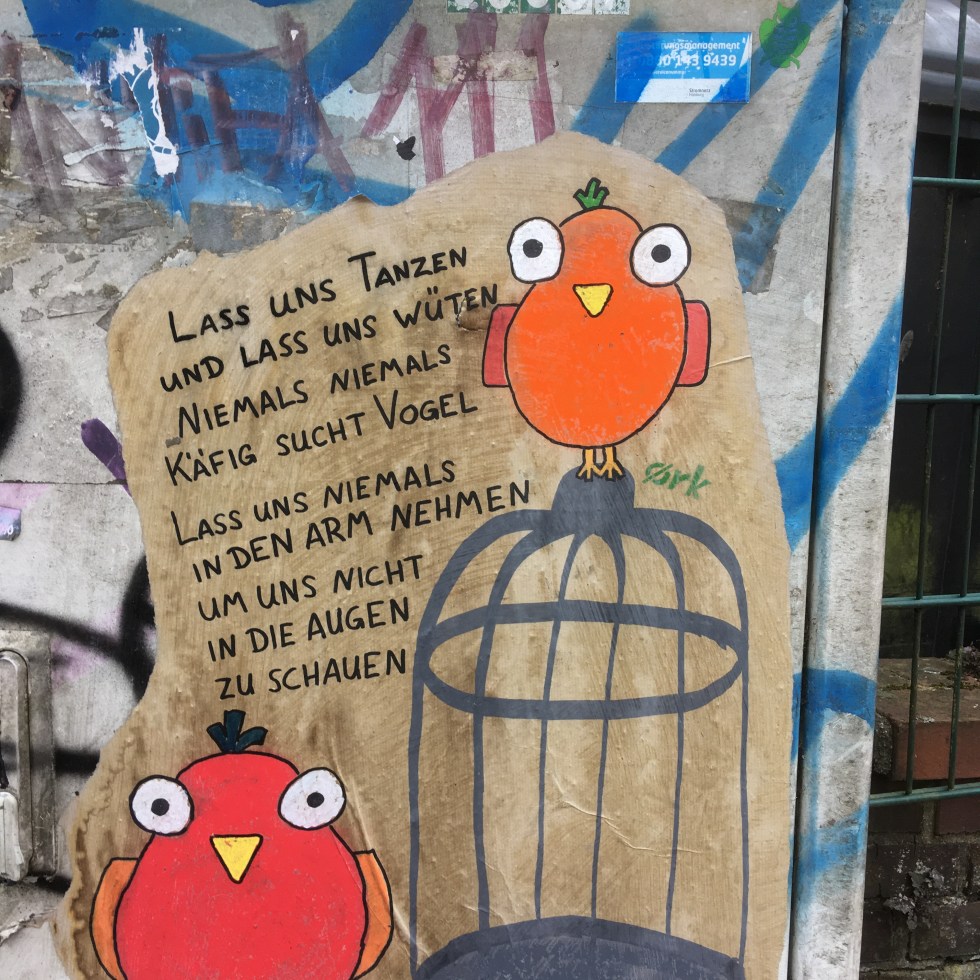 ungsmanagement
0 143 9439
LASS UNS TANZEN
UND LASS UNS WÜTEN
NIEMALS NIEMALS
KÄFIG SUCHT VOGEL
LASS UNS NIEMALS
IN DEN ARM NEHMEN
UM UNS NICHT
IN DIE AUGEN
ZU SCHAUEN
Ørk